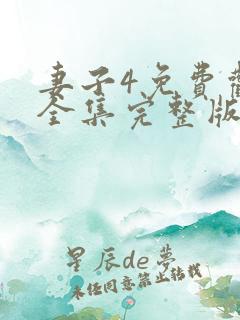 妻子4免费
全集完整版
星辰de梦
未经同意禁止转载